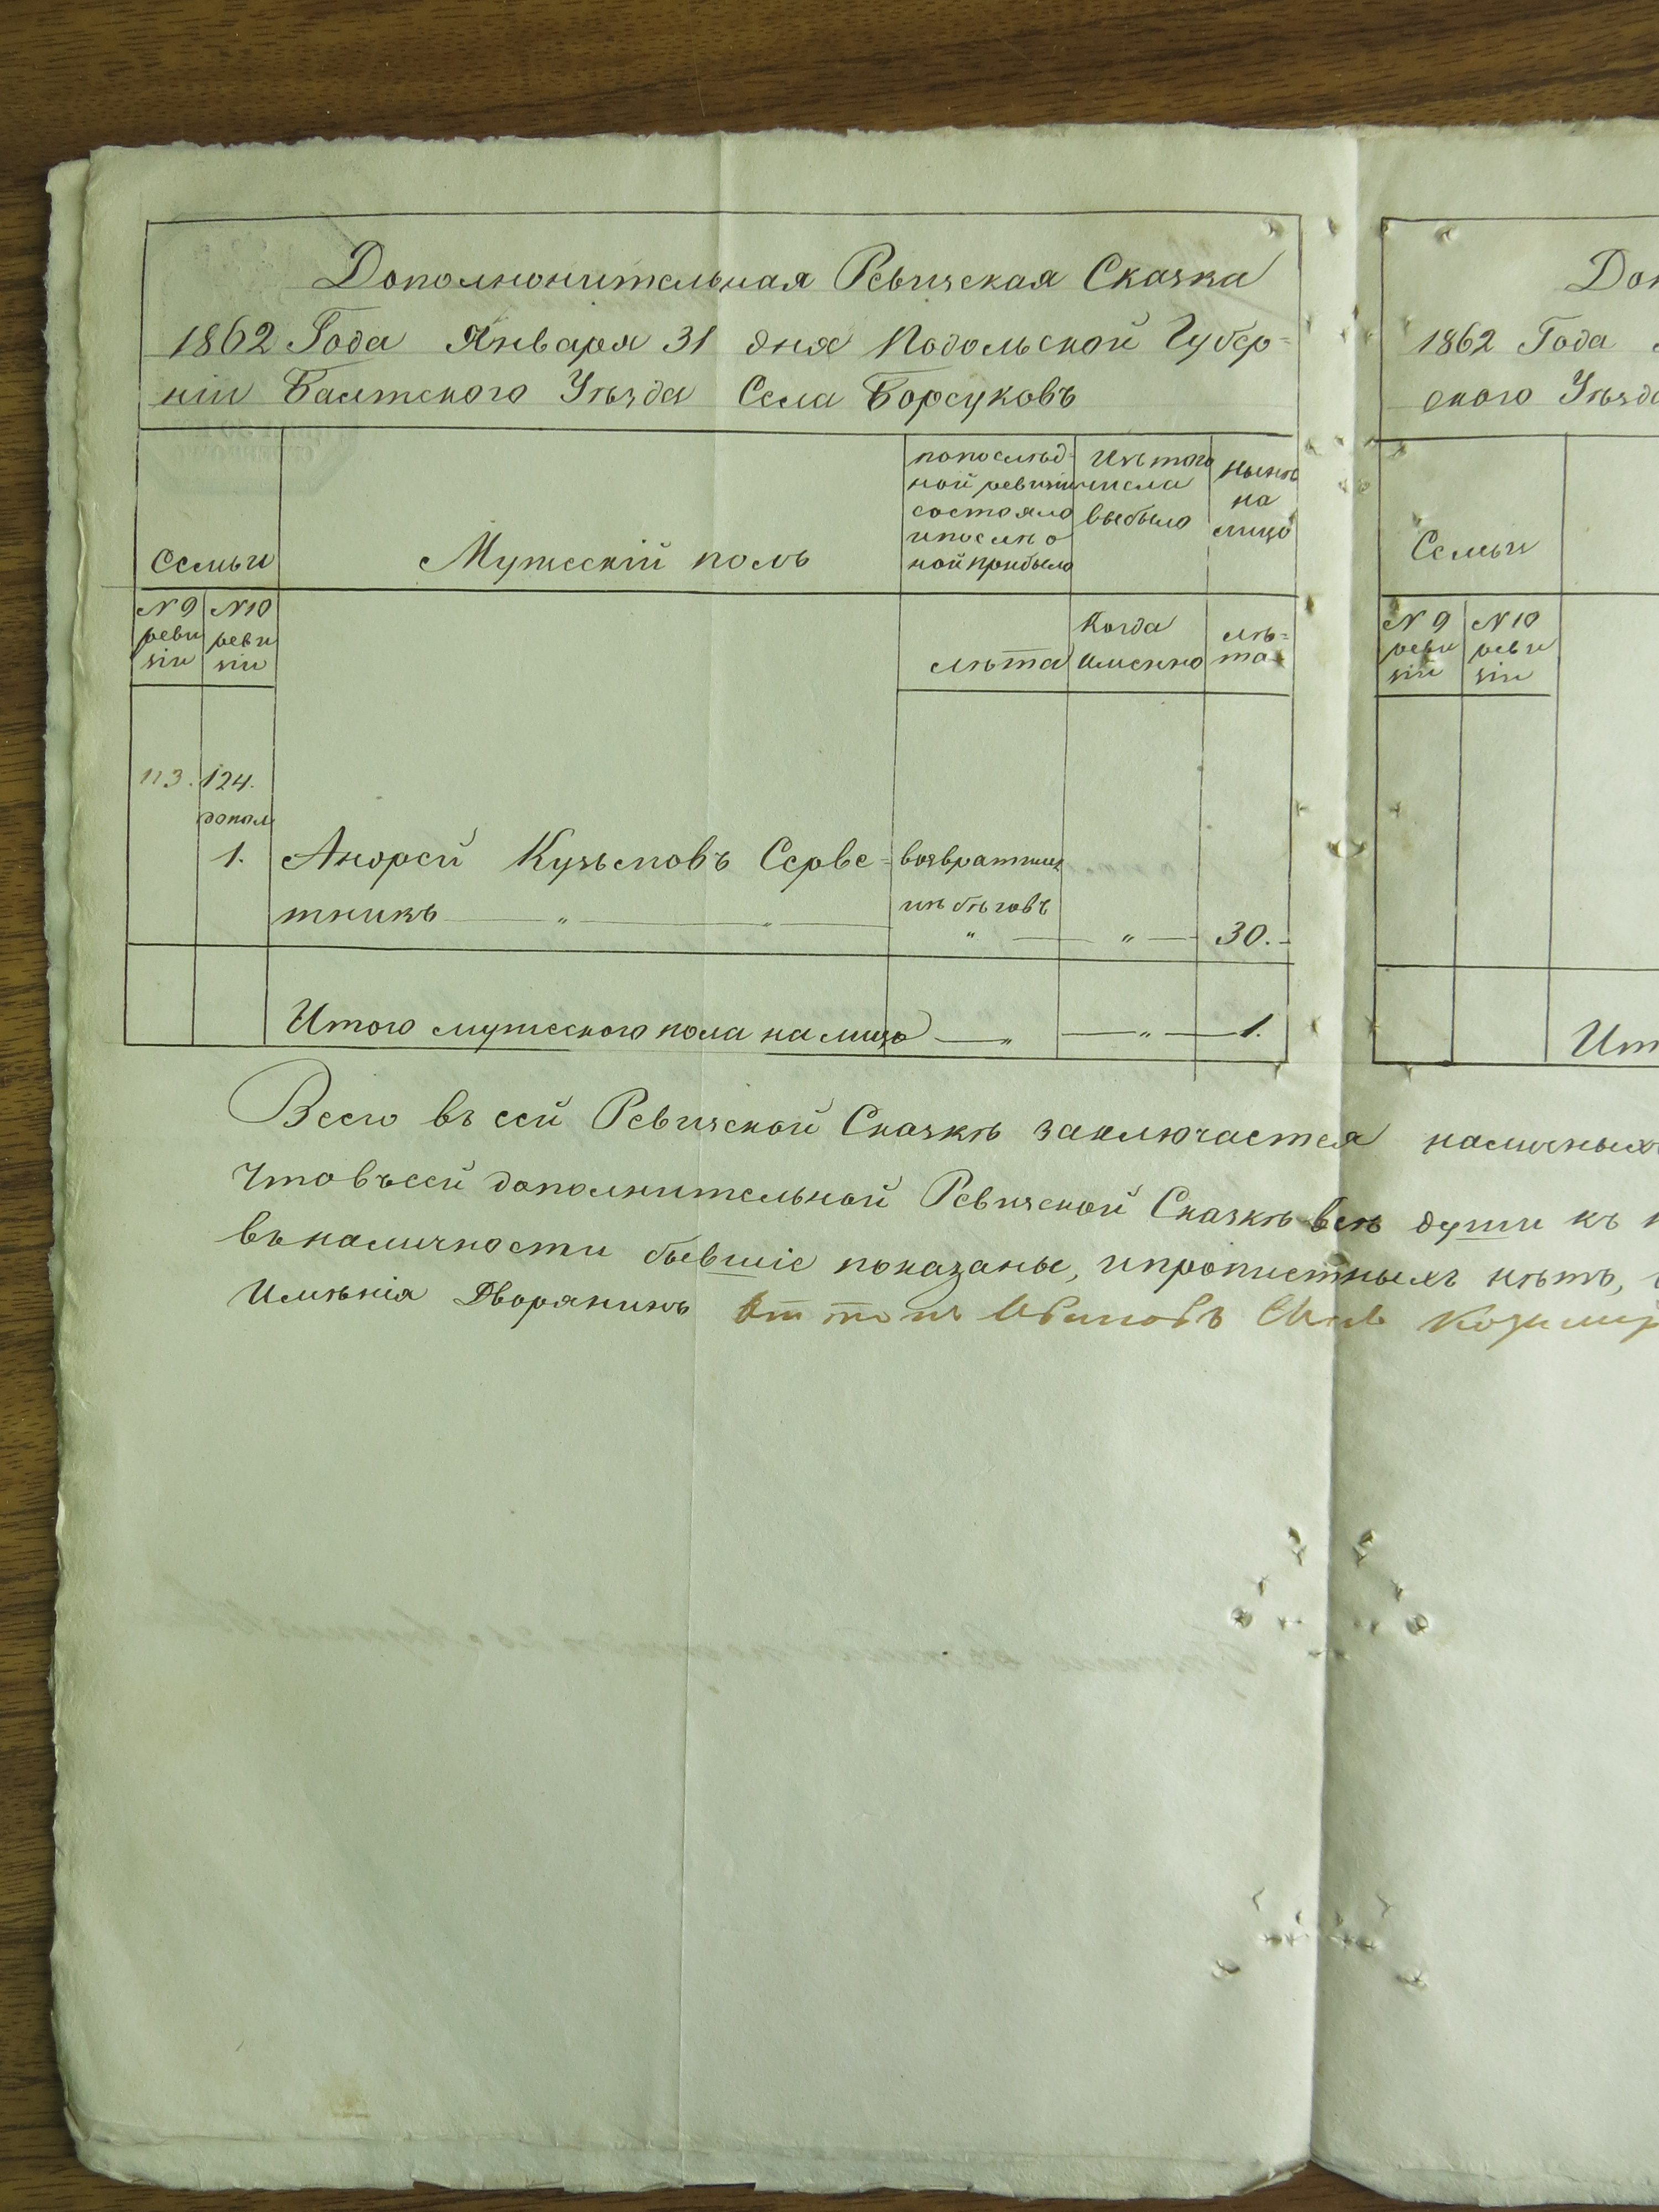 Дополнонительная Ревизская Сказка
1862 Года Января 31 дня Подольской Губер=
ніи Балтского Уѣзда Села Борсуковъ
Семьи
Мужескій полъ
по послѣд-
ной ревизіи
состояло
и послѣ о
ной прибыло
Изъ того
числа
выбыло
нынѣ
на
лицо
N 9
реви
зіи
N 10
реви
зіи
лѣта
Когда
именно
лѣ=
та
113. 124.
допол
1. Андрей Кузьмовъ Серве=
тникъ — " — " —
возвратился
изъ бѣговъ
" — " — 30.-
Итого мужеского пола на лицо — " — " — 1.
Всего въ сей Ревизской Сказкѣ заключается наличныхъ
Что въ сей дополнительной Ревизской Сказкѣ всѣ души къ
въ наличности бывшіе показаны, и прописныхъ нѣтъ,
Имѣнія Дворянинъ Антонъ Ивановъ Сынъ Козимир
До
1862 Года
ского Уѣзда
Семьи
N 9
реви
зіи
N 10
реви
зіи
Ит